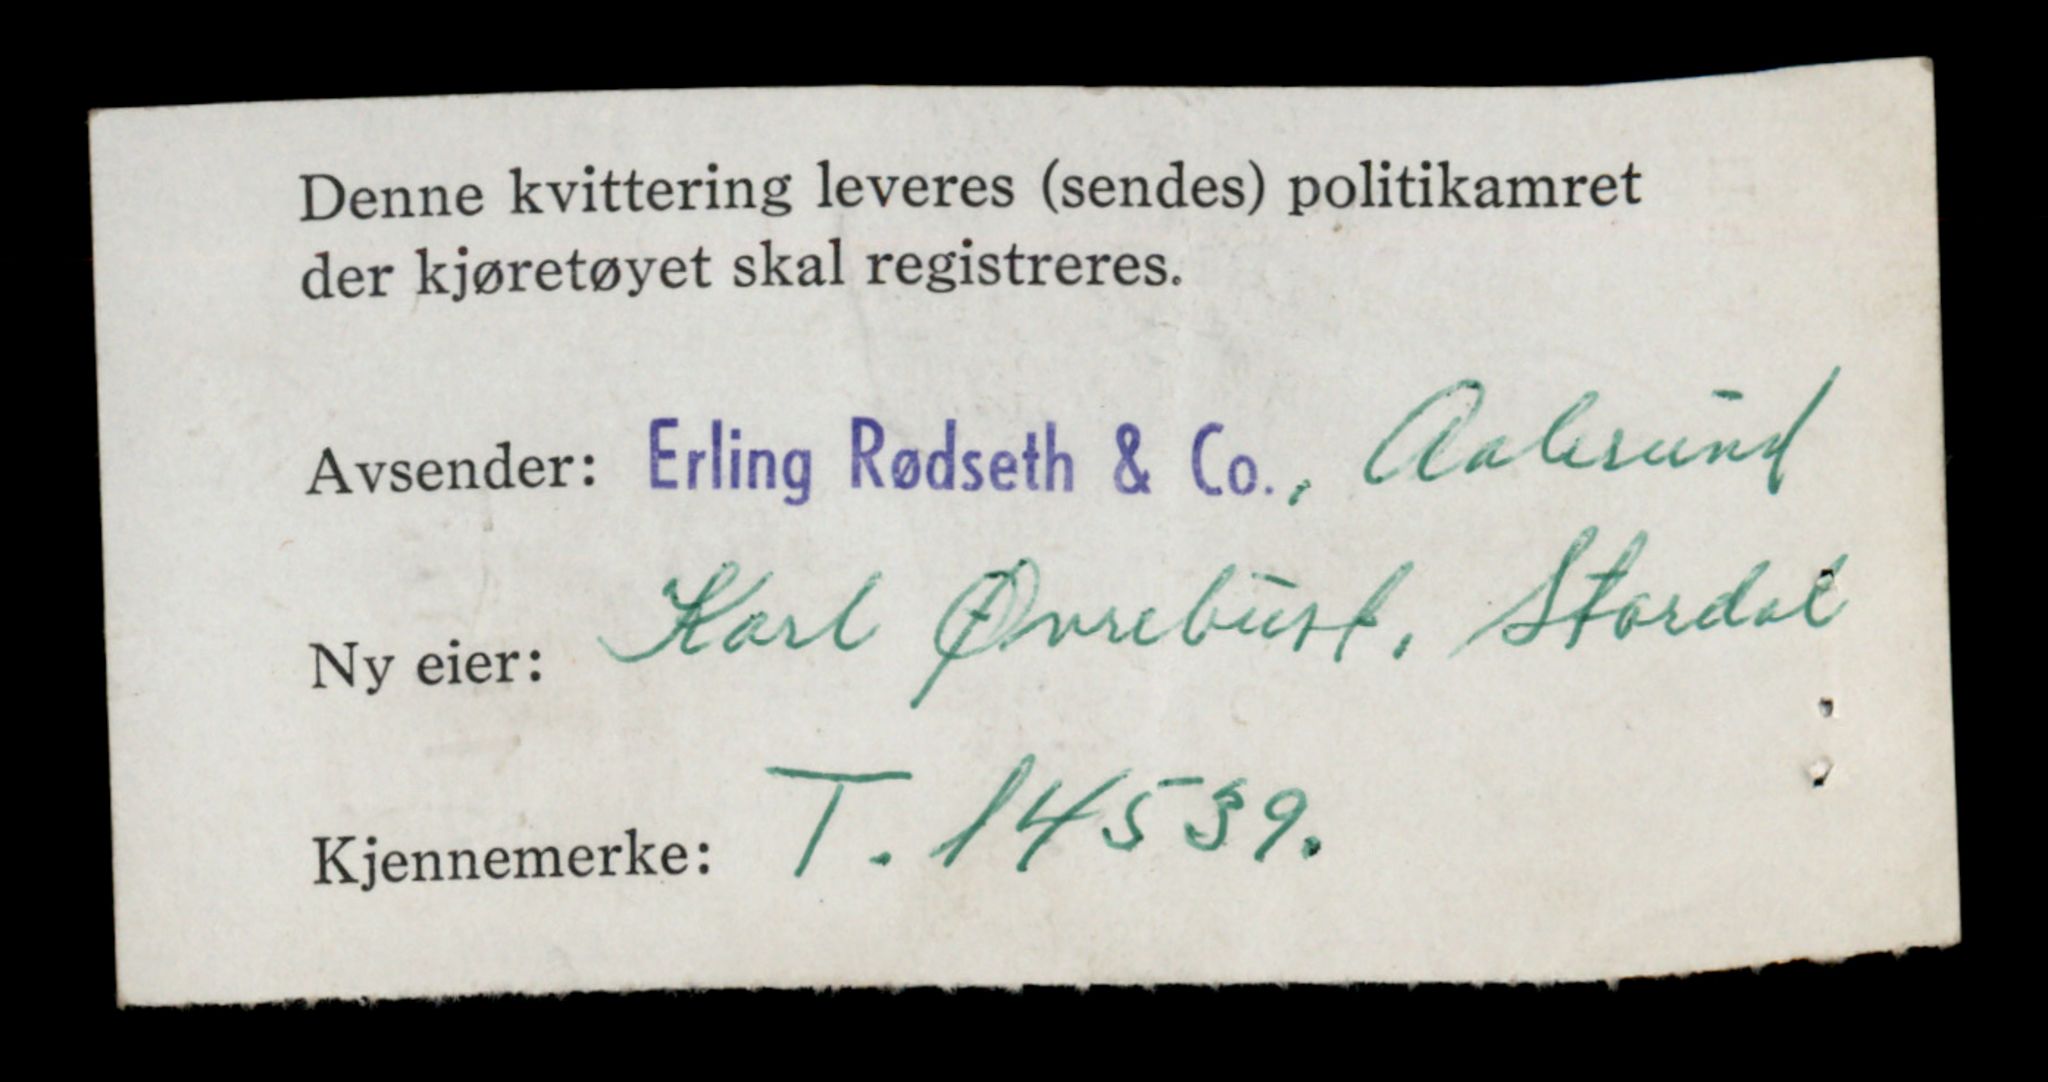 Denne kvittering leveres (sendes) politikamret
der kjøretøyet skal registreres.
Avsender: Erling Rødseth & Co., Aalesund
Ny eier: Karl Øvrebust, Stordal
Kjennemerke: T. 14539.